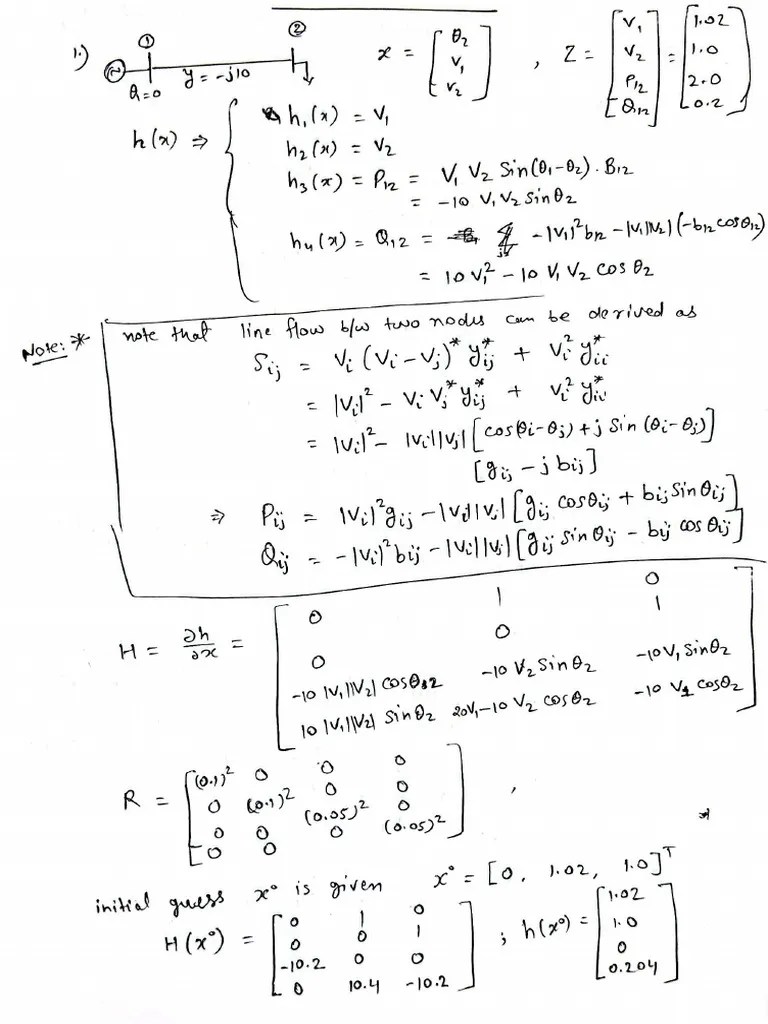 1.) ① ② x = [θ₂ V₁ V₂] , Z = [V₁ V₂ P₁₂ Q₁₂] = [1.02 1.0 2.0 0.2]
θ₁=0 y = -j10
h(x) ⇒ { h₁(x) = V₁
h₂(x) = V₂
h₃(x) = P₁₂ = V₁ V₂ Sin(θ₁-θ₂) . B₁₂
= -10 V₁ V₂ sin θ₂
h₄(x) = Q₁₂ = -|V₁|² b₁₂ - |V₁||V₂| (-b₁₂ cos θ₁₂)
= 10 V₁² - 10 V₁ V₂ cos θ₂
Note: * note that line flow b/w two nodes can be derived as
Sij = Vi (Vi - Vj)* yij* + Vi² yii*
= |Vi|² - Vi Vj* yij* + Vi² yii*
= |Vi|² - |Vi||Vj| [cos(θi-θj) + j Sin (θi-θj)]
[gij - j bij]
⇒ Pij = |Vi|² gij - |Vi||Vj| [gij cosθij + bij Sin θij]
Qij = -|Vi|² bij - |Vi||Vj| [gij sin θij - bij cos θij]
H = ∂h/∂x = [ 0 1 0
0 0 1
-10 |V₁||V₂| cosθ₁₂ -10 V₂ Sin θ₂ -10 V₁ Sinθ₂
10 |V₁||V₂| sin θ₂ 20V₁ - 10 V₂ cos θ₂ -10 V₁ cosθ₂ ]
R = [ (0.1)² 0 0 0
0 (0.1)² 0 0
0 0 (0.05)² 0
0 0 0 (0.05)² ] ,
initial guess x° is given x° = [0, 1.02, 1.0]ᵀ
H(x°) = [ 0 1 0
0 0 1
-10.2 0 0
0 10.4 -10.2 ] ; h(x°) = [1.02 1.0 0 0.204]